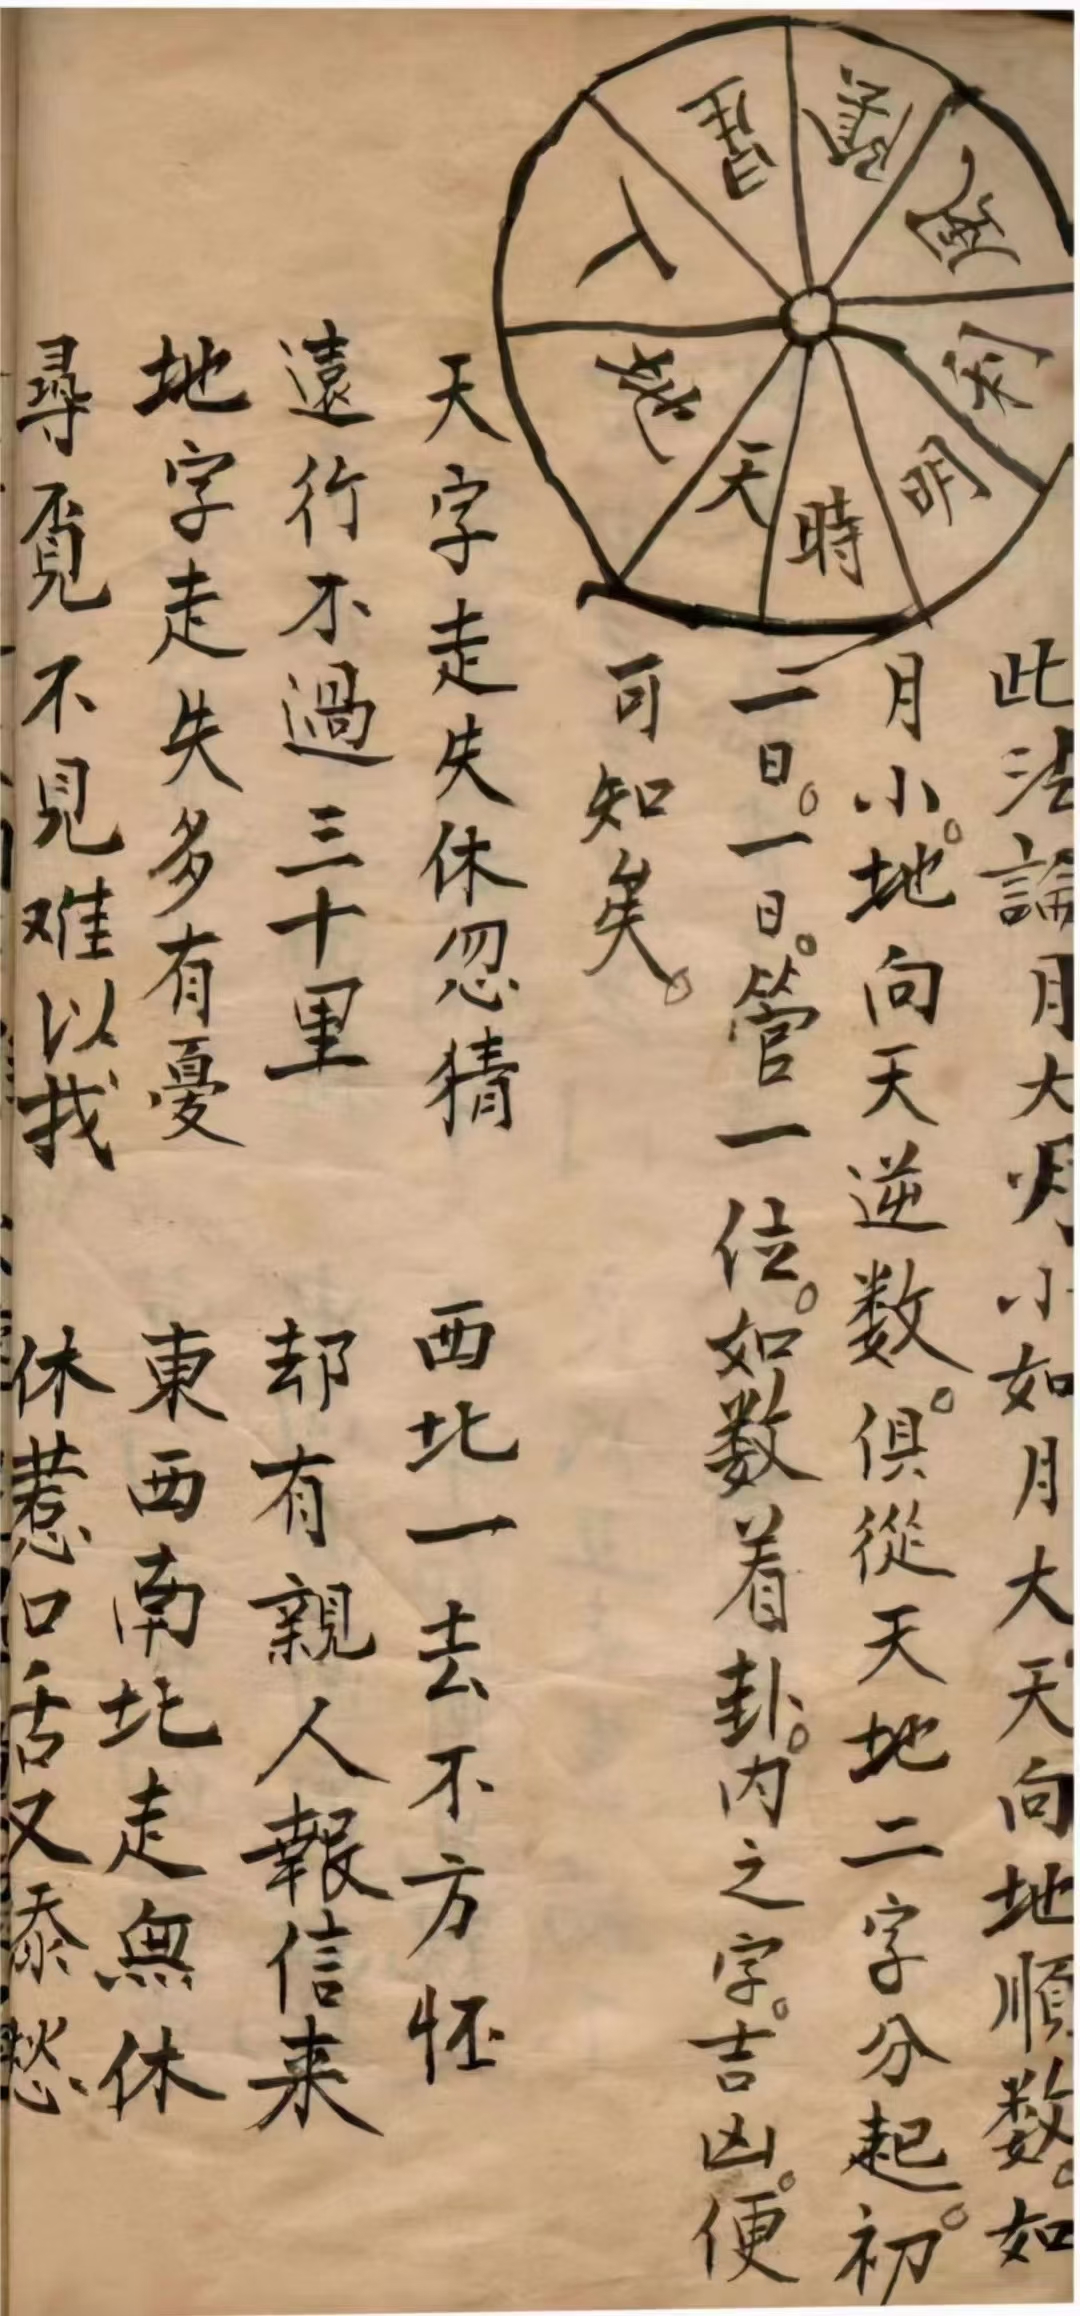 天
地
人
明
時
此法論月大月小如月大天向地順数。如
月小。地向天逆数。俱從天地二字分起。初
一日。一日。管一位。如数着卦。内之字。吉凶。便
可知矣。
天字走失休忽猜 西北一去不方怌
遠行不過三十里 却有親人報信来
地字走失多有憂 東西南北走無休
尋覓不見难以找 休惹口舌又添愁